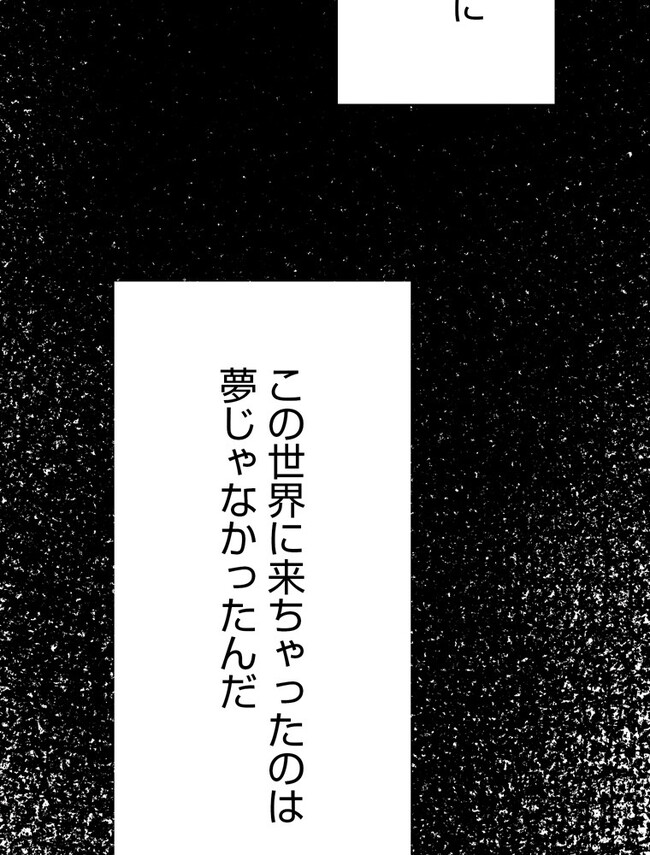 に
この世界に来ちゃったのは
夢じゃなかったんだ